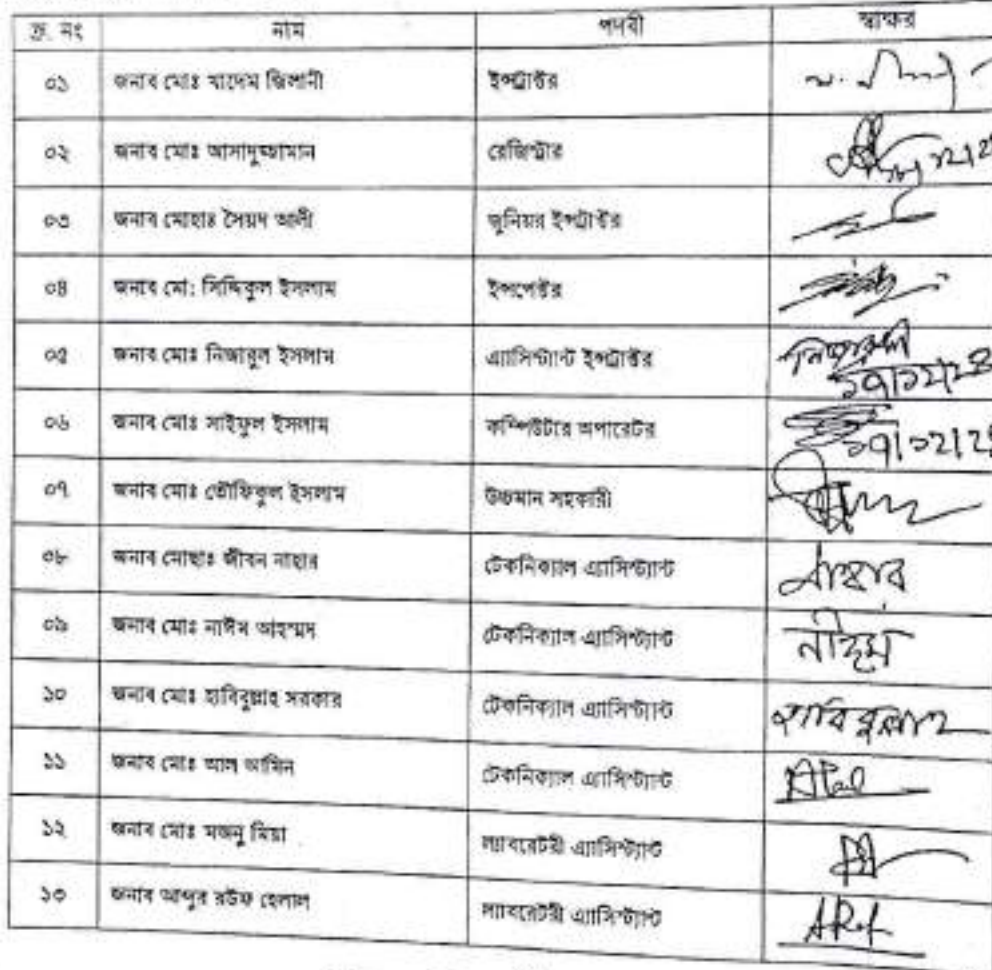 ক্র. নং নাম পদবী স্বাক্ষর
০১ জনাব মোঃ খাদেম জিলানী ইন্সট্রাক্টর
০২ জনাব মোঃ আসাদুজ্জামান রেজিস্ট্রার
০৩ জনাব মোহাঃ সৈয়দ আলী জুনিয়র ইন্সট্রাক্টর
০৪ জনাব মো: সিদ্দিকুল ইসলাম ইন্সপেক্টর
০৫ জনাব মোঃ নিজারুল ইসলাম এ্যাসিস্ট্যান্ট ইন্সট্রাক্টর
০৬ জনাব মোঃ সাইফুল ইসলাম কম্পিউটার অপারেটর
০৭ জনাব মোঃ তৌফিকুল ইসলাম উচ্চমান সহকারী
০৮ জনাব মোছাঃ জীবন নাহার টেকনিক্যাল এ্যাসিস্ট্যান্ট
০৯ জনাব মোঃ নাঈম আহম্মদ টেকনিক্যাল এ্যাসিস্ট্যান্ট নাঈম
১০ জনাব মোঃ হাবিবুল্লাহ সরকার টেকনিক্যাল এ্যাসিস্ট্যান্ট হাবিবুল্লাহ
১১ জনাব মোঃ আল আমিন টেকনিক্যাল এ্যাসিস্ট্যান্ট
১২ জনাব মোঃ মজনু মিয়া ল্যাবরেটরী এ্যাসিস্ট্যান্ট
১৩ জনাব আব্দুর রউফ হেলাল ল্যাবরেটরী এ্যাসিস্ট্যান্ট